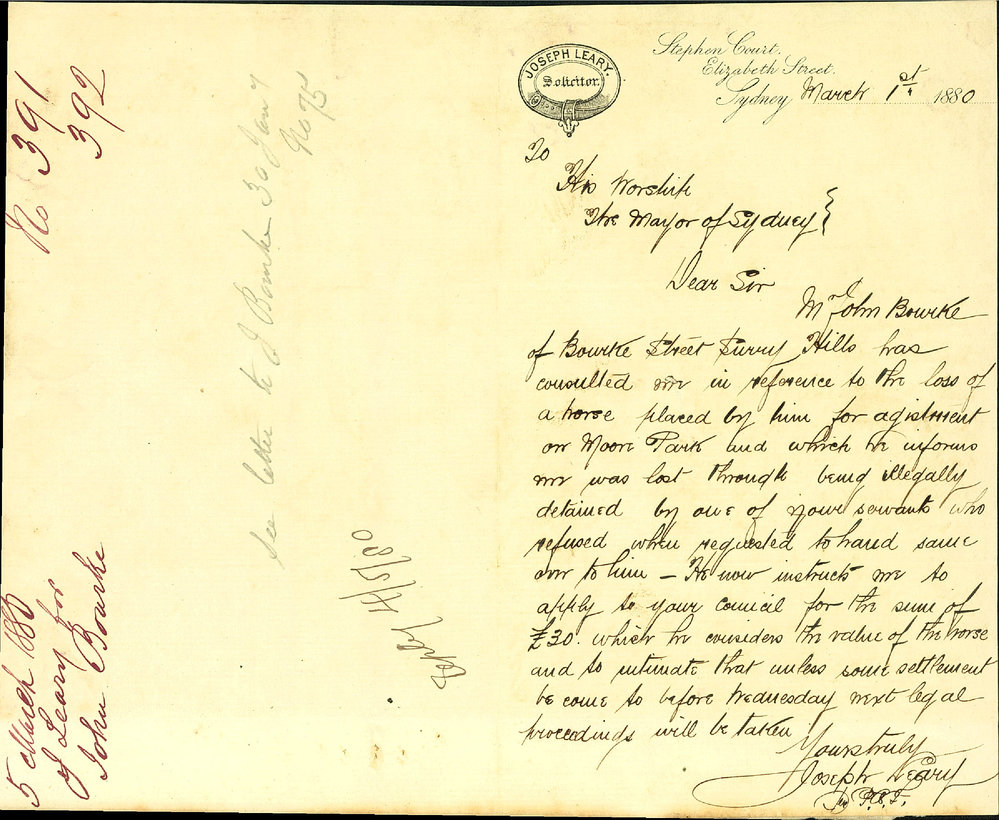 No 391
392
See letter to J Bourke 30 Jany
No 75
4/5/80
5 March 1880
J Leary for
John Bourke
JOSEPH LEARY.
Solicitor.
Stephen Court.
Elizabeth Street.
Sydney March 1st 1880
To
His Worship
The Mayor of Sydney }
Dear Sir
Mr John Bourke
of Bourke Street Surry Hills has
consulted me in reference to the loss of
a horse placed by him for agistment
on Moore Park and which he informs
me was lost through being illegally
detained by one of your servants who
refused when requested to hand same
over to him – He now instructs me to
apply to your Council for the sum of
£30. which he considers the value of the horse
and to intimate that unless some settlement
be come to before Wednesday next legal
proceedings will be taken
Yours truly
Joseph Leary